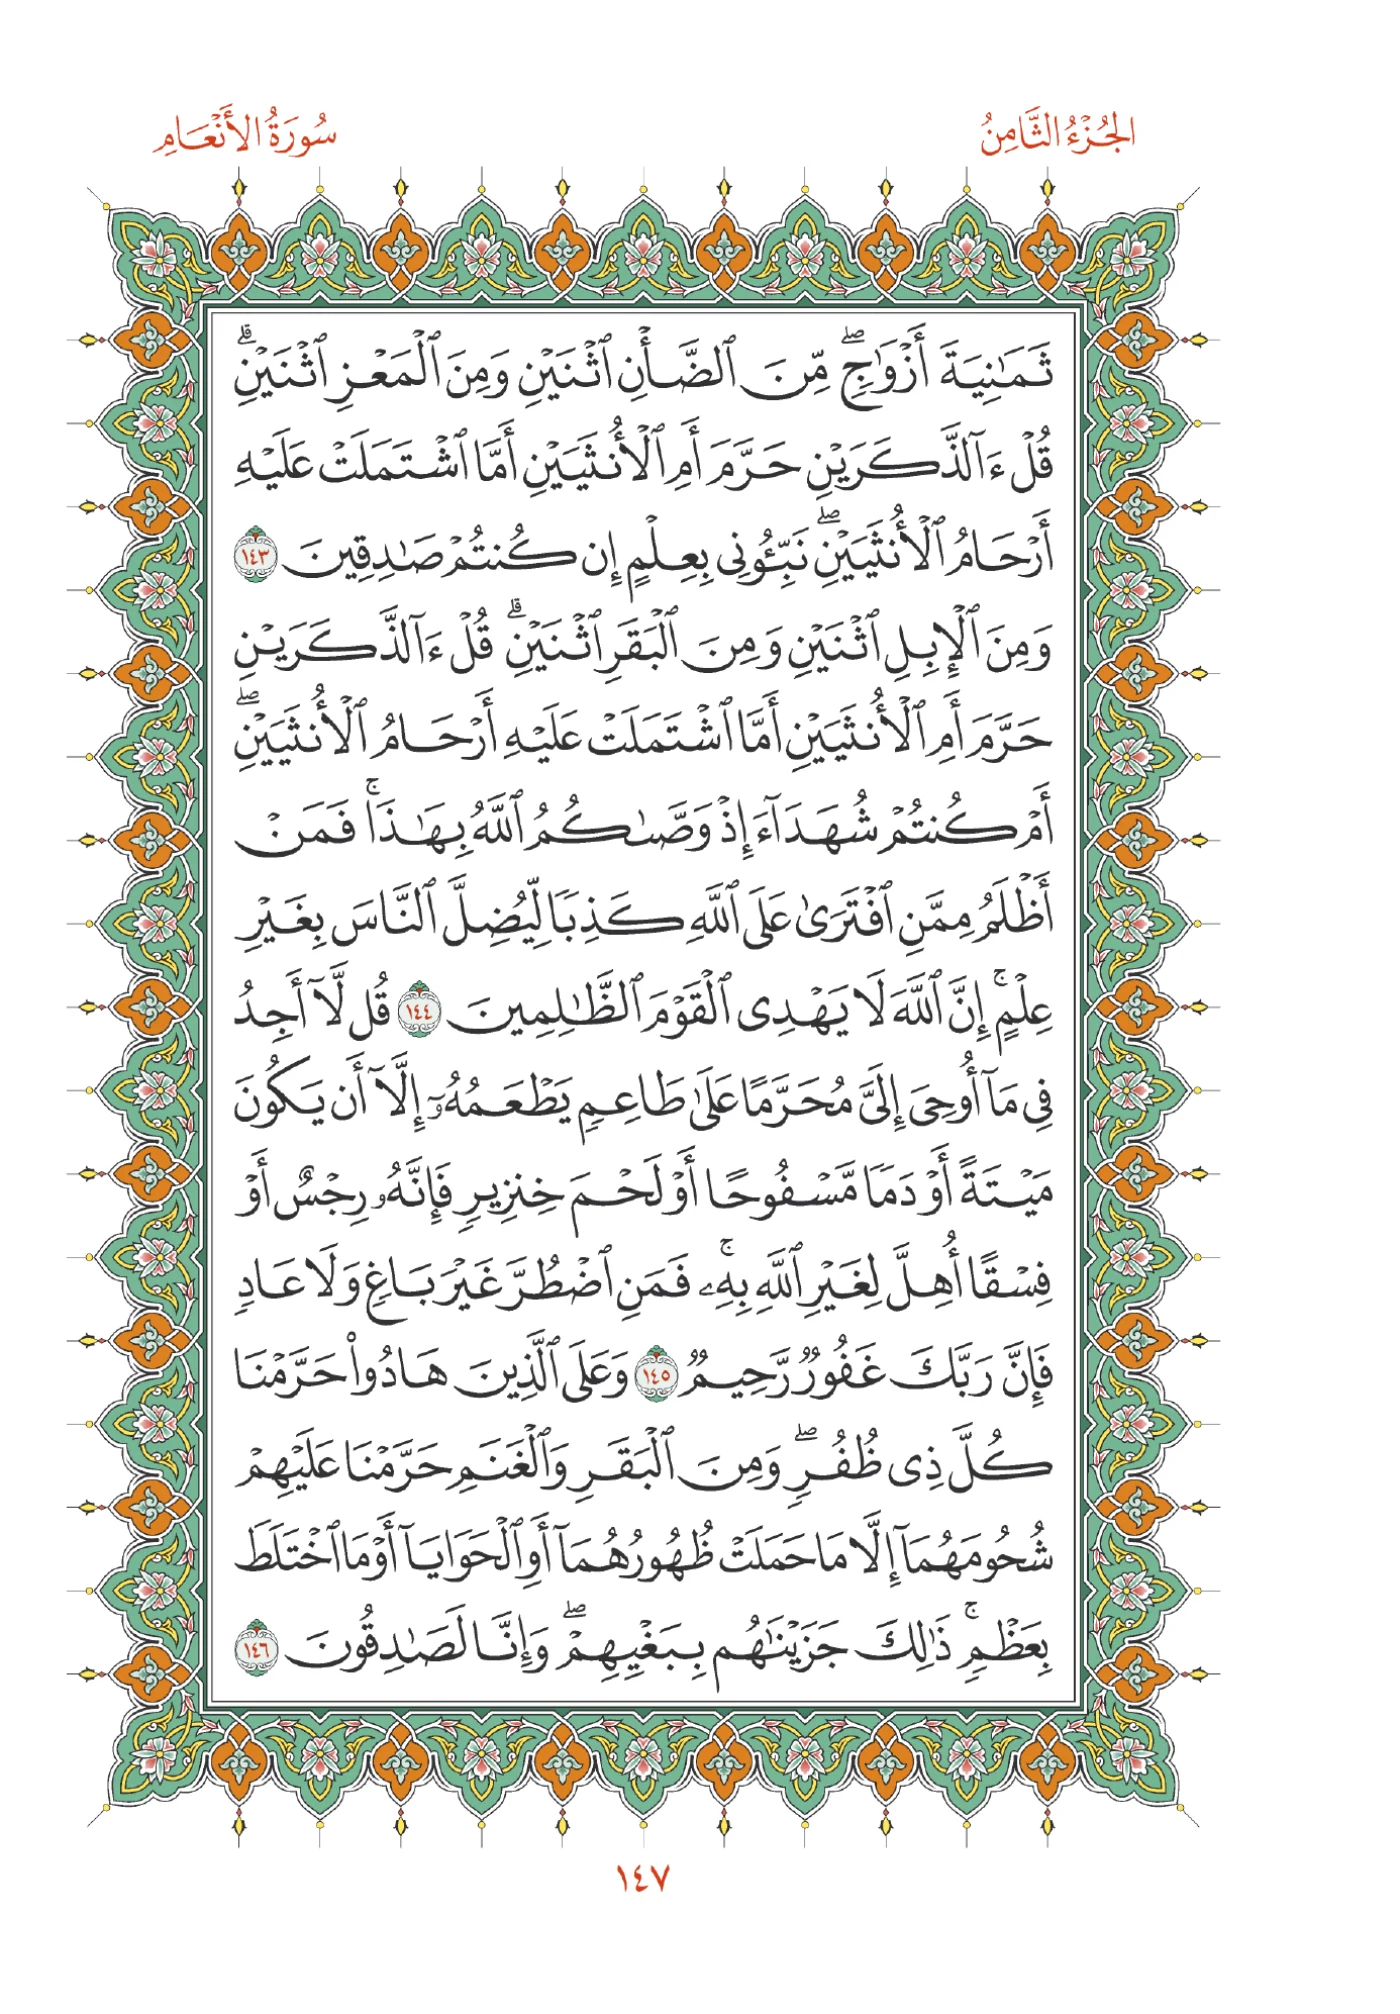 الجُزْءُ الثَّامِنُ
سُورَةُ الأَنْعَامِ
ثَمَٰنِيَةَ أَزْوَٰجٖۖ مِّنَ ٱلضَّأْنِ ٱثْنَيْنِ وَمِنَ ٱلْمَعْزِ ٱثْنَيْنِۗ
قُلْ ءَآلذَّكَرَيْنِ حَرَّمَ أَمِ ٱلْأُنثَيَيْنِ أَمَّا ٱشْتَمَلَتْ عَلَيْهِ
أَرْحَامُ ٱلْأُنثَيَيْنِۖ نَبِّـُٔونِي بِعِلْمٍ إِن كُنتُمْ صَٰدِقِينَ ١٤٣
وَمِنَ ٱلْإِبِلِ ٱثْنَيْنِ وَمِنَ ٱلْبَقَرِ ٱثْنَيْنِۗ قُلْ ءَآلذَّكَرَيْنِ
حَرَّمَ أَمِ ٱلْأُنثَيَيْنِ أَمَّا ٱشْتَمَلَتْ عَلَيْهِ أَرْحَامُ ٱلْأُنثَيَيْنِۖ
أَمْ كُنتُمْ شُهَدَآءَ إِذْ وَصَّىٰكُمُ ٱللَّهُ بِهَٰذَاۚ فَمَنْ
أَظْلَمُ مِمَّنِ ٱفْتَرَىٰ عَلَى ٱللَّهِ كَذِبٗا لِّيُضِلَّ ٱلنَّاسَ بِغَيْرِ
عِلْمٍۚ إِنَّ ٱللَّهَ لَا يَهْدِى ٱلْقَوْمَ ٱلظَّٰلِمِينَ ١٤٤ قُل لَّآ أَجِدُ
فِى مَآ أُوحِىَ إِلَىَّ مُحَرَّمًا عَلَىٰ طَاعِمٖ يَطْعَمُهُۥٓ إِلَّآ أَن يَكُونَ
مَيْتَةً أَوْ دَمٗا مَّسْفُوحًا أَوْ لَحْمَ خِنزِيرٖ فَإِنَّهُۥ رِجْسٌ أَوْ
فِسْقًا أُهِلَّ لِغَيْرِ ٱللَّهِ بِهِۦۚ فَمَنِ ٱضْطُرَّ غَيْرَ بَاغٖ وَلَا عَادٖ
فَإِنَّ رَبَّكَ غَفُورٞ رَّحِيمٞ ١٤٥ وَعَلَى ٱلَّذِينَ هَادُوا۟ حَرَّمْنَا
كُلَّ ذِى ظُفُرٖۖ وَمِنَ ٱلْبَقَرِ وَٱلْغَنَمِ حَرَّمْنَا عَلَيْهِمْ
شُحُومَهُمَآ إِلَّا مَا حَمَلَتْ ظُهُورُهُمَآ أَوِ ٱلْحَوَايَآ أَوْ مَا ٱخْتَلَطَ
بِعَظْمٖۚ ذَٰلِكَ جَزَيْنَٰهُم بِبَغْيِهِمْۖ وَإِنَّا لَصَٰدِقُونَ ١٤٦
١٤٧